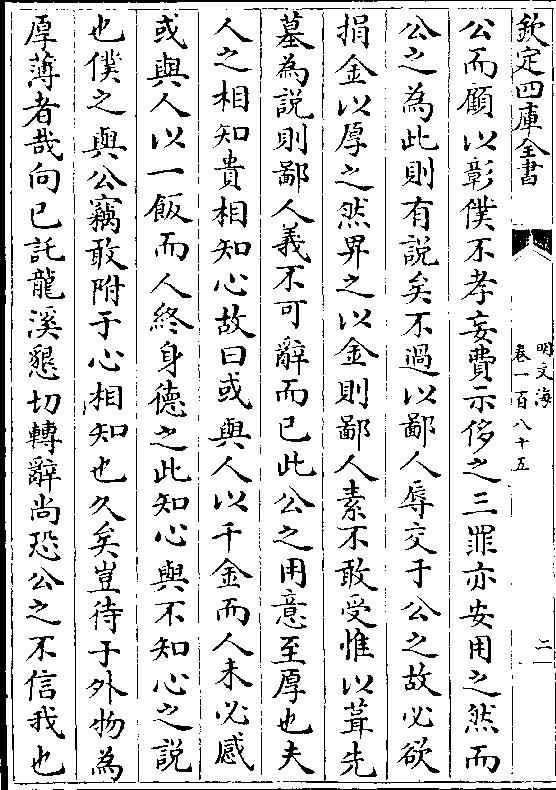 欽定四庫全書
明文海
卷一百八十五
二
公而顧以彰僕不孝妄費示侈之三罪亦安用之然而
公之為此則有説矣不過以鄙人辱交于公之故必欲
捐金以厚之然畀之以金則鄙人素不敢受惟以葺先
墓為説則鄙人義不可辭而已此公之用意至厚也夫
人之相知貴相知心故曰或與人以千金而人未必感
或與人以一飯而人終身德之此知心與不知心之説
也僕之與公竊敢附于心相知也久矣豈待于外物為
厚薄者哉向已託龍溪懇切轉辭尚恐公之不信我也